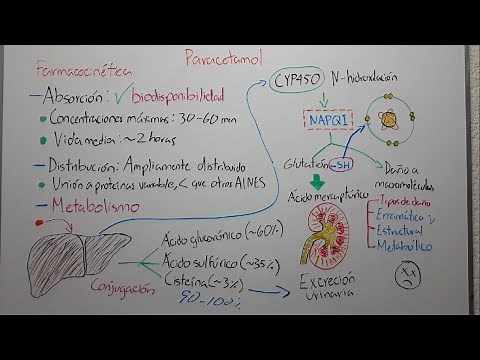 Paracetamol
Farmacocinética
- Absorción: ✓ biodisponibilidad
• Concentraciones máximas: 30-60 min
• Vida media: ~2 horas
- Distribución: Ampliamente distribuido
• Unión a proteínas variable, < que otros AINES
- Metabolismo
Ácido glucorónico (~60%)
Ácido sulfúrico (~35%)
Cisteína (~3%)
90-100%
Conjugación
CYP450 N-hidroxilación
NAPQI
Glutatión-SH
Daño a
macromoléculas
Ácido mercaptúrico
Tipos de daño
Enzimático
Estructural
Metabólico
Excreción
urinaria
X X